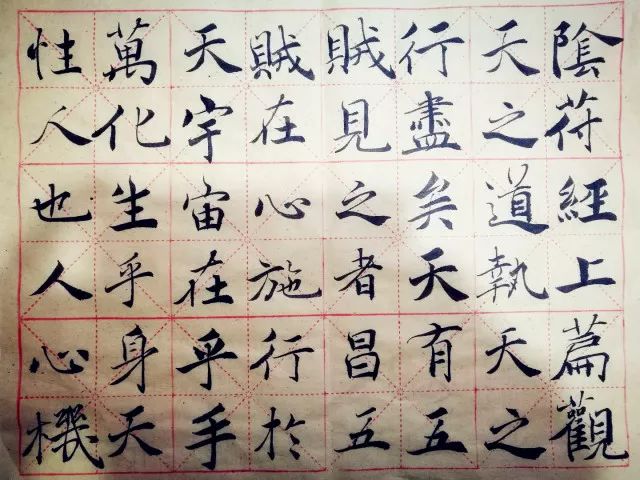 陰符經上篇觀
天之道執天之
行盡矣天有五
賊見之者昌五
賊在心施行於
天宇宙在乎手
萬化生乎身天
性人也人心機